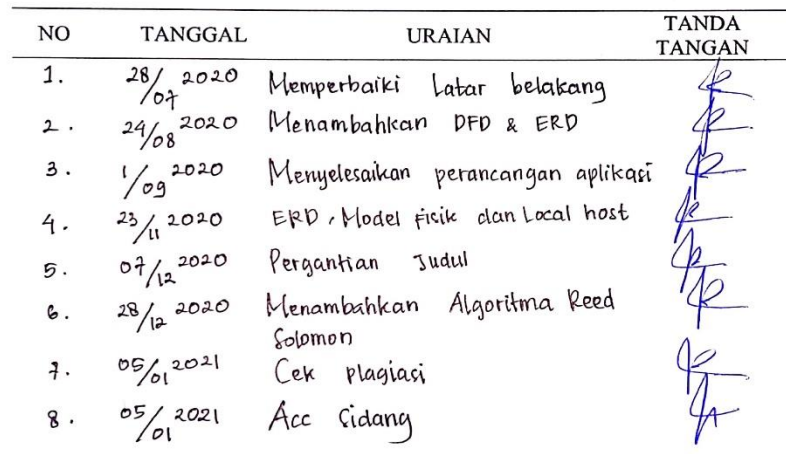 NO TANGGAL URAIAN TANDA TANGAN
1. 28/07 2020 Memperbaiki Latar belakang
2. 24/08 2020 Menambahkan DFD & ERD
3. 1/09 2020 Menyelesaikan perancangan aplikasi
4. 23/11 2020 ERD, Model Fisik dan Local host
5. 07/12 2020 Pergantian Judul
6. 28/12 2020 Menambahkan Algoritma Reed
Solomon
7. 05/01 2021 Cek plagiasi
8. 05/01 2021 Acc Sidang